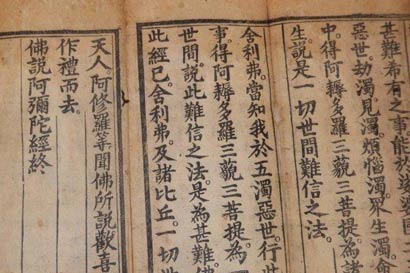 甚難希有之事能於娑婆國
惡世劫濁見濁煩惱濁眾生濁命
中得阿耨多羅三藐三菩提為諸
生說是一切世間難信之法
舍利弗當知我於五濁惡世行
事得阿耨多羅三藐三菩提為
世間說此難信之法是為甚難佛
此經已舍利弗及諸比丘一切
天人阿修羅等聞佛所說歡喜
作禮而去
佛說阿彌陀經終